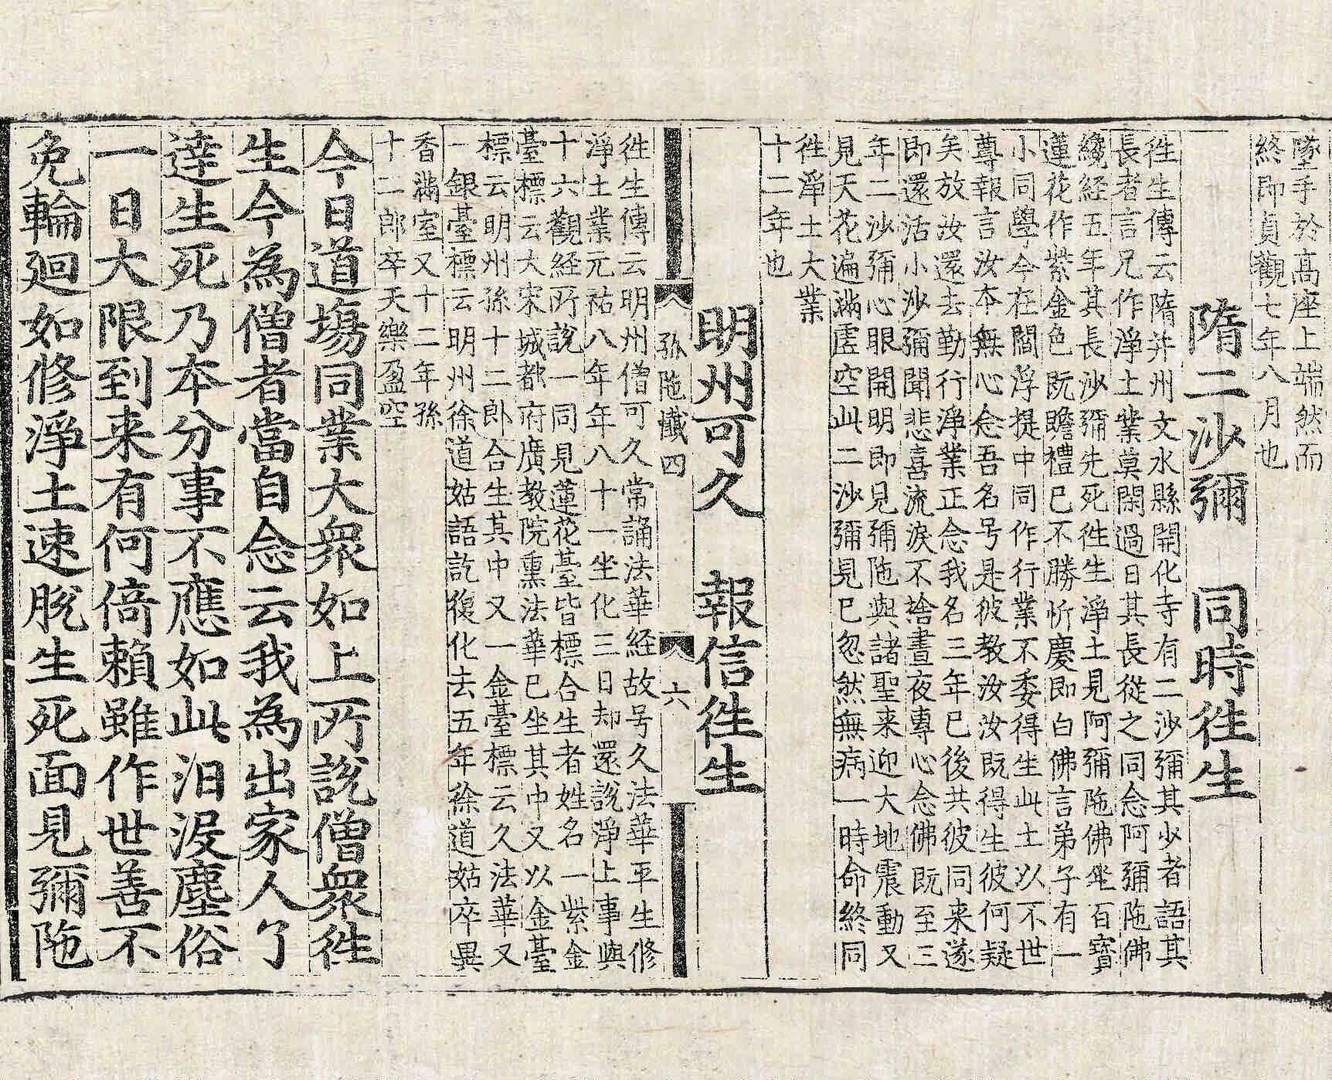 墜手於高座上端然而
終即貞觀七年八月也
隋二沙彌　同時徃生
徃生傳云隋并州文水縣開化寺有二沙彌其少者語其
長者言兄作淨土業莫閑過日其長從之同念阿彌陁佛
纔經五年其長沙彌先死徃生淨土見阿彌陁佛坐百寶
蓮花作紫金色旣瞻禮已不勝忻慶即白佛言弟子有一
小同學今在閻浮提中同作行業不委得生此土以不世
尊報言汝本無心念吾名号是彼教汝汝旣得生彼何疑
矣放汝還去勤行淨業正念我名三年已後共彼同来遂
即還活小沙彌聞悲喜流淚不捨晝夜專心念佛旣至三
年二沙彌心眼開明即見彌陁與諸聖来迎大地震動又
見天花遍滿虛空此二沙彌見已忽然無病一時命終同
徃淨土大業
十二年也
明州可久　報信徃生
弥陁懺四　六
徃生傳云明州僧可久常誦法華経故号久法華平生修
淨土業元祐八年年八十一坐化三日却還說淨土事與
十六觀経所說一同見蓮花臺皆標合生者姓名一紫金
臺標云大宋城都府廣教院熏法華已坐其中又以金臺
標云明州孫十二郎合生其中又一金臺標云久法華又
一銀臺標云明州徐道姑語訖復化去五年徐道姑卒異
香滿室又十二年孫
十二郎卒天樂盈空
今日道塲同業大衆如上所說僧衆徃
生今為僧者當自念云我為出家人了
達生死乃本分事不應如此汨沒塵俗
一日大限到来有何倚賴雖作世善不
免輪廻如修淨土速脫生死面見彌陁